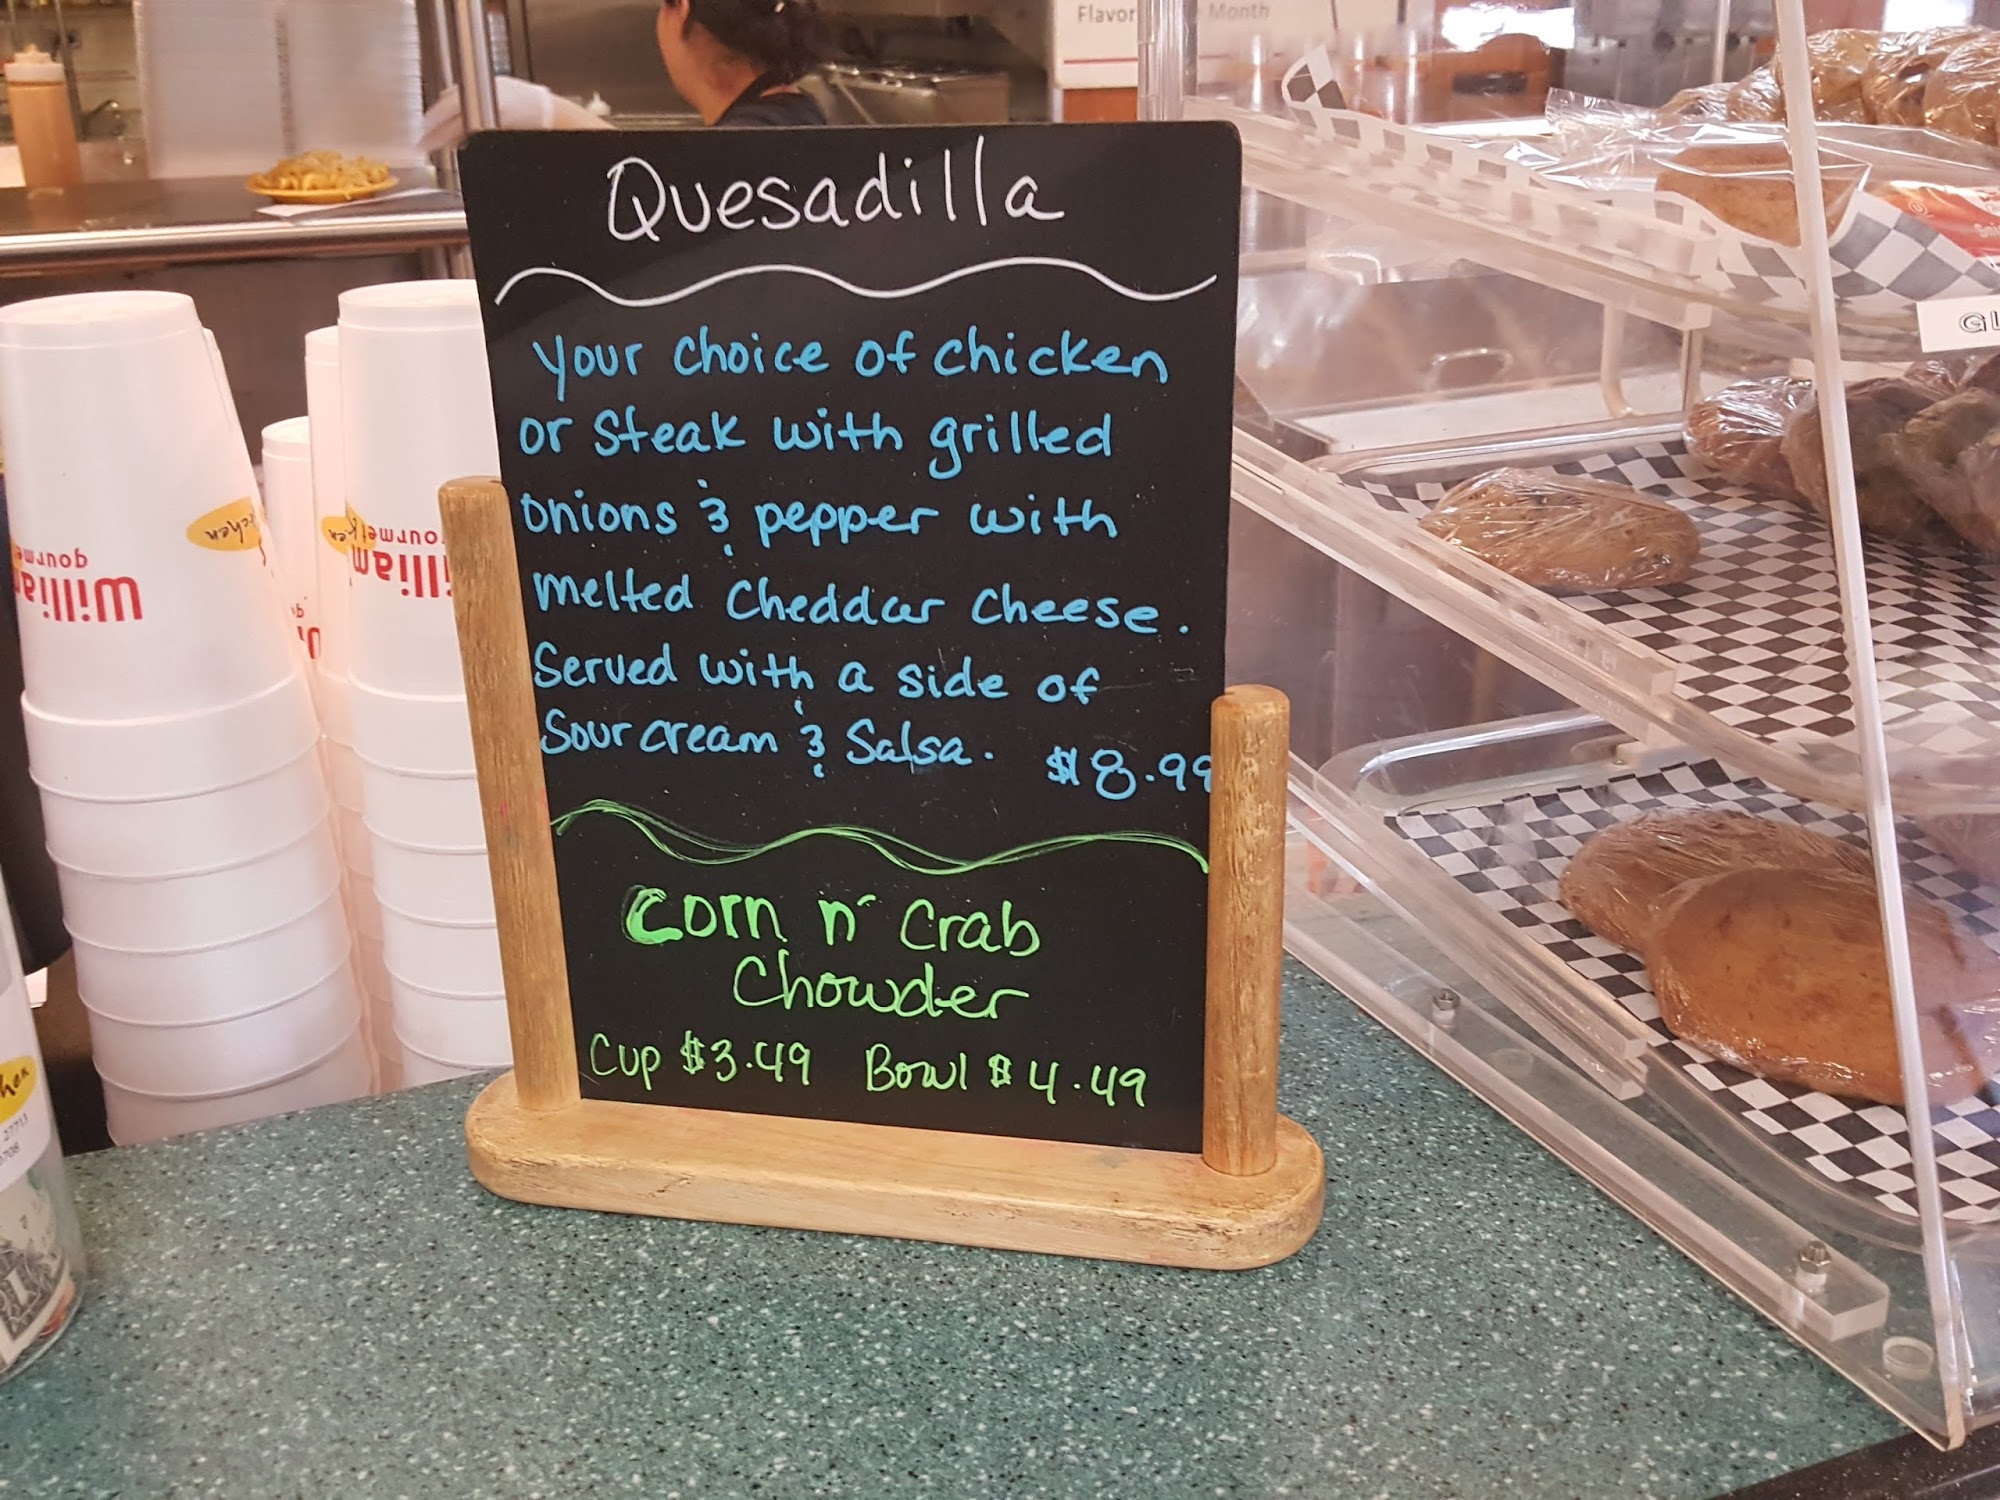 Flavor Month
Quesadilla
Your choice of chicken
or steak with grilled
onions & pepper with
melted cheddar cheese.
Served with a side of
Sour cream & Salsa. $8.99
Corn n' Crab
Chowder
Cup $3.49 Bowl $4.49
William
gourmet
27713